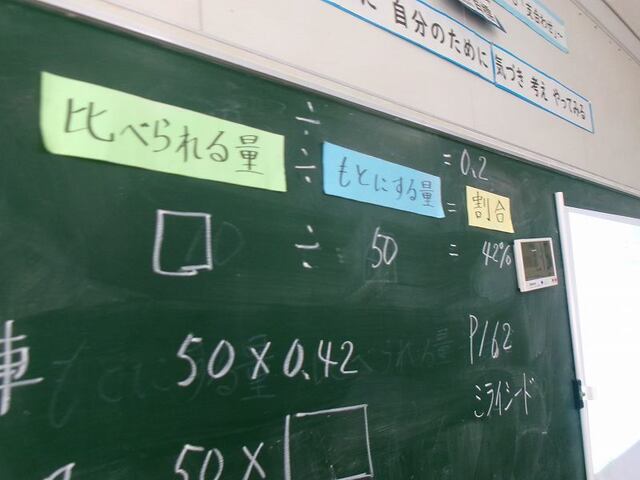 自分のために 気づき 考え やってみる
÷ = 0.2
比べられる量 ÷ もとにする量 = 割合
□ ÷ 50 = 42%
50×0.42
P162
ミライシード
車
50×□